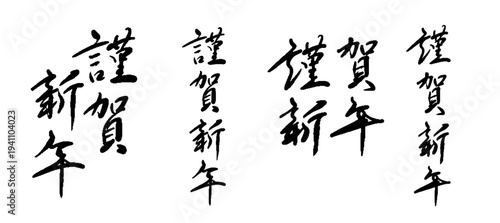 謹賀
新年
謹賀新年
謹賀
新年
謹賀新年
Adobe Stock | #1941104023